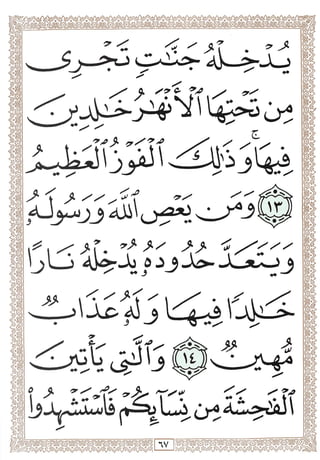 يُدْخِلْهُ جَنَّـٰتٍ تَجْرِى
مِن تَحْتِهَا ٱلْأَنْهَـٰرُ خَـٰلِدِينَ
فِيهَا ۚ وَذَٰلِكَ ٱلْفَوْزُ ٱلْعَظِيمُ
١٣ وَمَن يَعْصِ ٱللَّهَ وَرَسُولَهُۥ
وَيَتَعَدَّ حُدُودَهُۥ يُدْخِلْهُ نَارًا
خَـٰلِدًا فِيهَا وَلَهُۥ عَذَابٌ
مُّهِينٌ ١٤ وَٱلَّـٰتِى يَأْتِينَ
ٱلْفَـٰحِشَةَ مِن نِّسَآئِكُمْ فَٱسْتَشْهِدُوا۟
٦٧